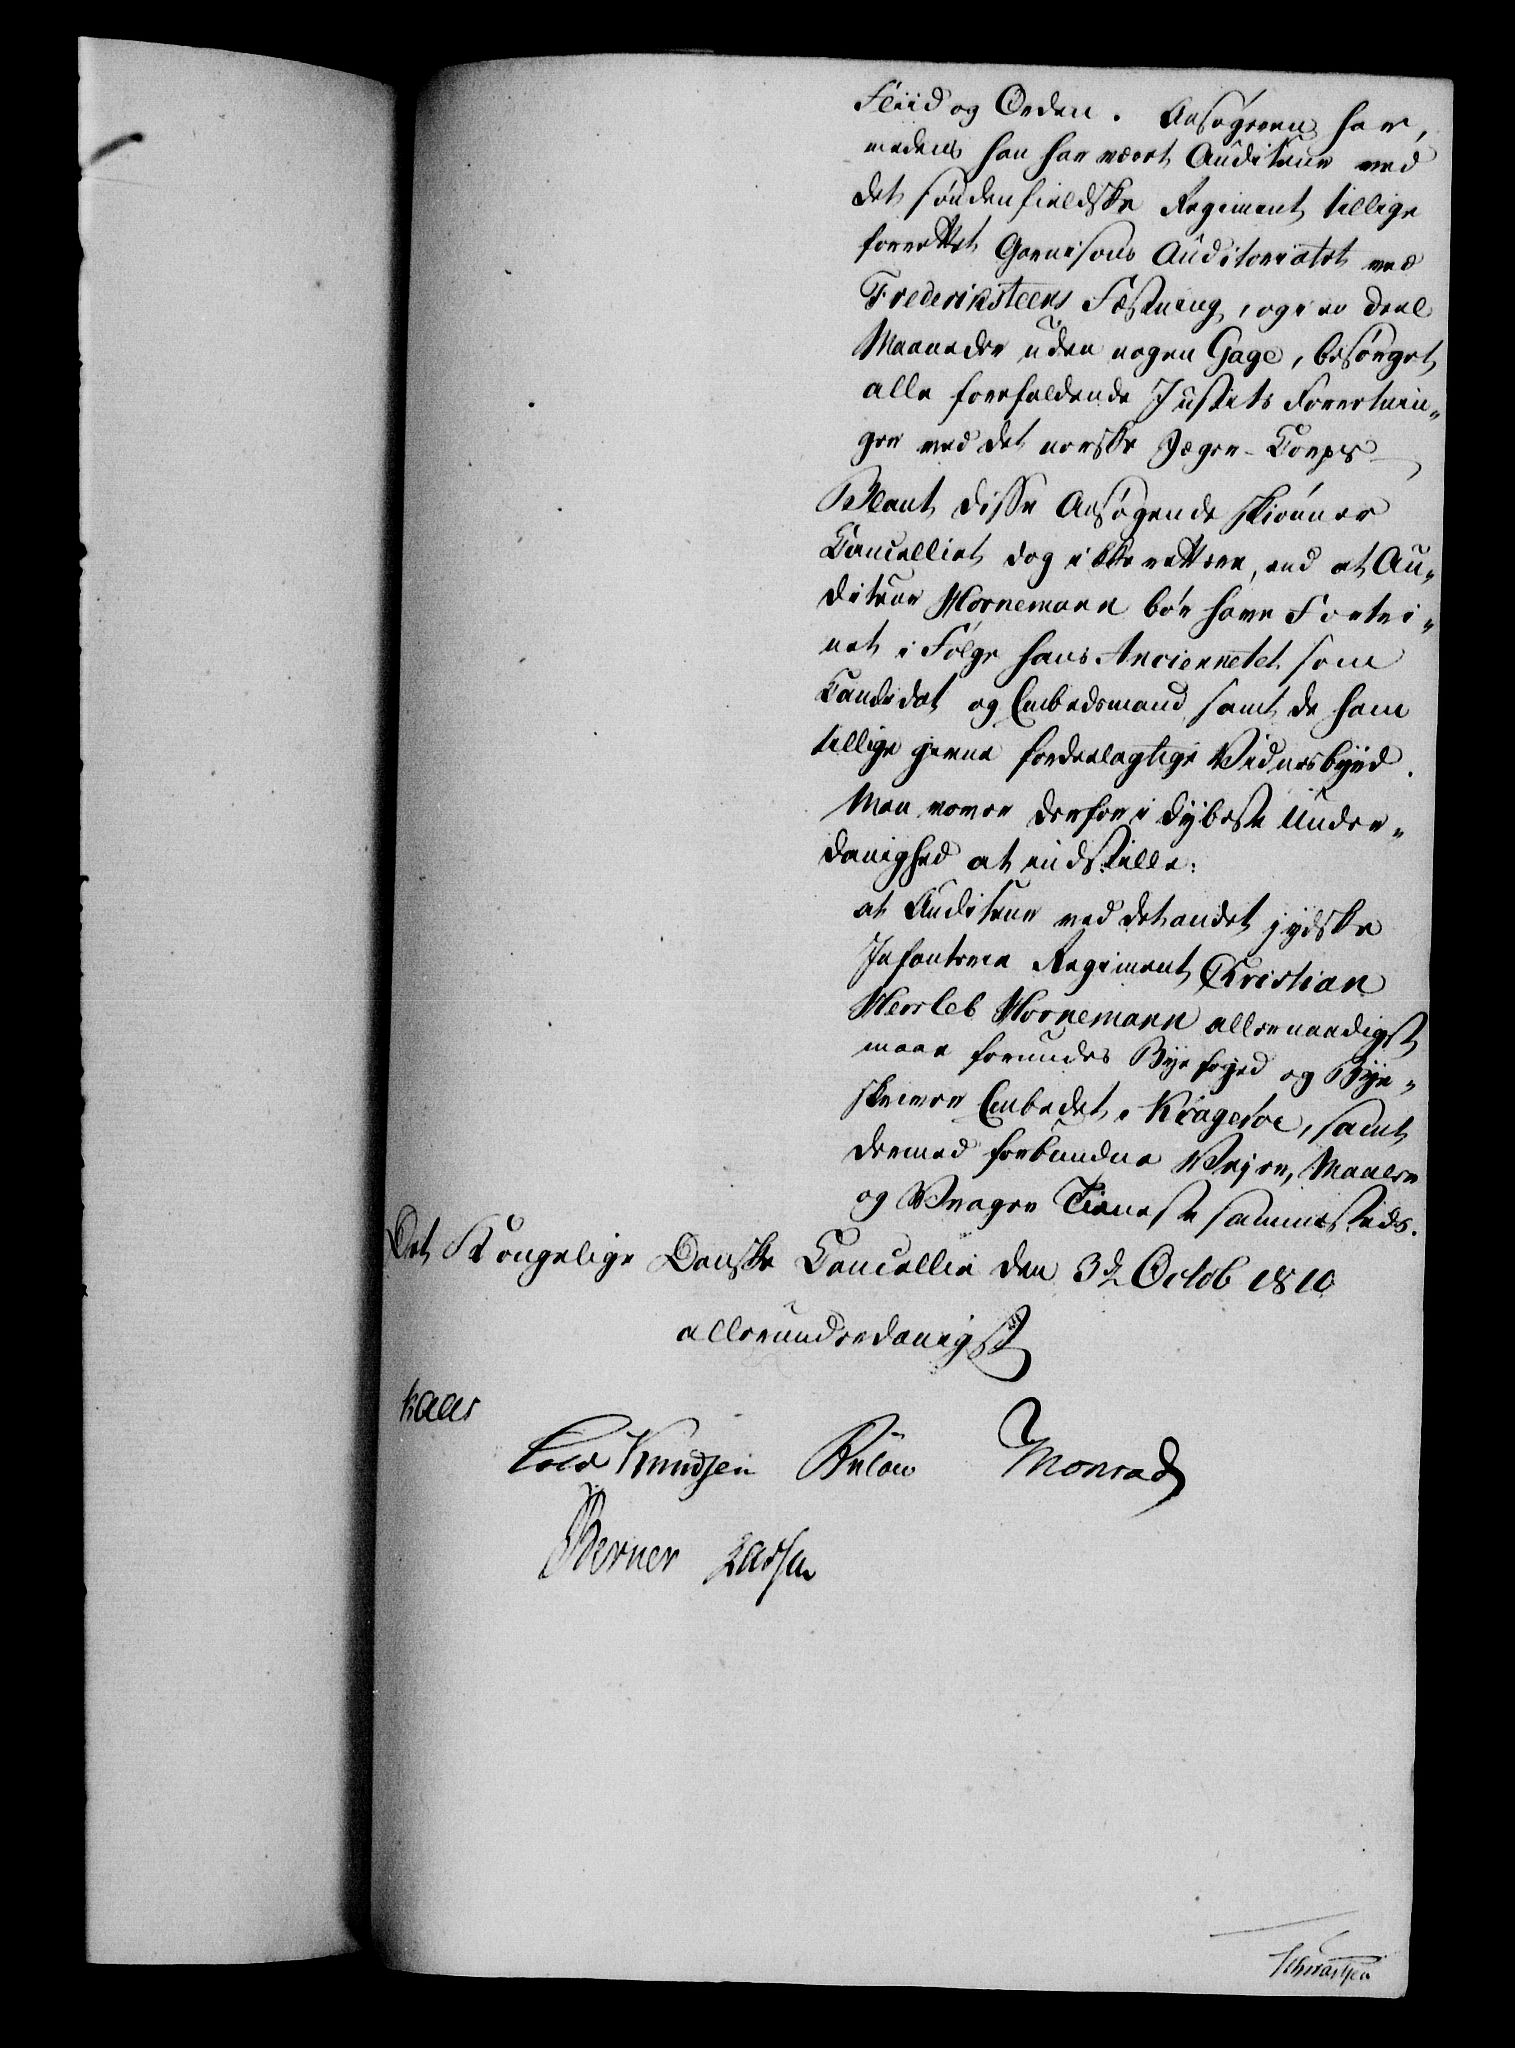 Fliid og Orden. Ansøgeren har,
medens han har været Auditeur ved
det søndenfieldske Regiment tillige
forrettet Garnisons Auditoriatet ved
Frederiksteens Fæstning, og i en Deel
Maaneder uden nogen Gage, besørget
alle forefaldende Justits Forretnin„
ger ved det norske Jæger-Corps
Blant disse Ansøgende skiønner
Cancelliet dog ikke rettere, end at Au„
diteur Hornemann bør have Fortri„
net i Følge hans Anciennetet som
Candidat og Embedsmand, samt de ham
tillige givne fordeelagtige Vidnesbyrd.
Man vover derfor i dybeste Under„
danighed at indstille:
at Auditeur ved det andet jydske
Infanterie Regiment Christian
Herrleb Hornemann allernaadigst
maae forundes Byefoged og Bye„
skriver Embedet i Krageröe, samt
dermed forbundne Vejer, Maaler
og Vrager Tieneste sammesteds.
Det Kongelige Danske Cancellie den 3d Octob 1810
allerunderdanigst
Kaas
Cold Knudsen Bülow Monrad
Berner Lassen